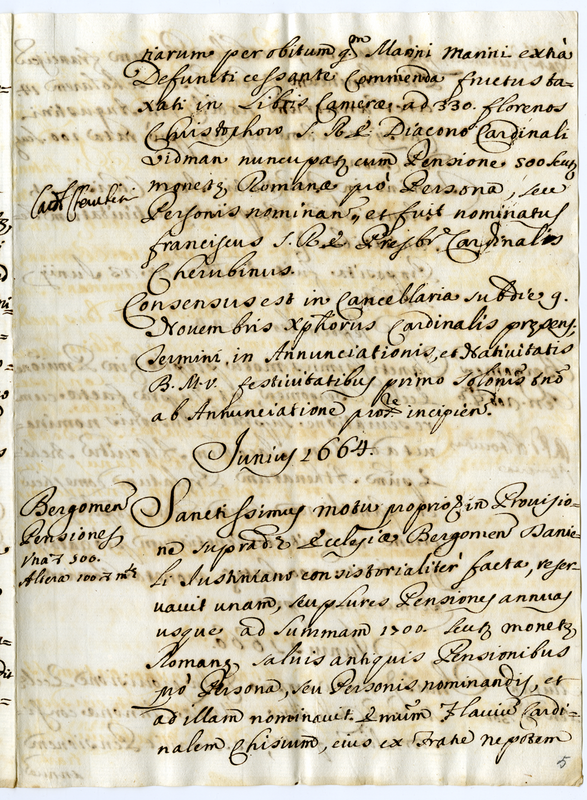 tiarum per obitum qm̃ Marini Marini extrà
Defuncti cessante Commenda fructus ta-
xati in Libris Cameræ ad 330. florenos
Christophoro S. R. E. Diacono Cardinali
Vidman nuncupatȝ cum Pensione 500 scutȝ
Card Cherubini
monetȝ Romanæ prò Persona, seu
Personis nominan, et fuit nominatus
franciscus S. R. E. Presbr. Cardinalis
Cherubinus.
Consensus est in Cancellaria sub die 9.
Novembris Xphorus Cardinalis præsens
Termini in Annunciationis, et Nativitatis
B. M. V. festivitatibus primo
ab Annunciatione incipien
Junius 1664.
Bergomen
Pensiones
Una 500.
Altera 100
Sanctissimus motu proprio in Provisio-
ne supradæ Ecclesiæ Bergomen Danie-
li Justiniano consistorialiter facta, reser-
vavit unam, seu plures Pensiones annuas
usque ad summam 1700 scutȝ monetȝ
Romanȝ salvis antiquis Pensionibus
prò Persona, seu Personis nominandis, et
ad illam nominavit Emũm Flavium Cardi-
nalem Chisium, eius ex Fratre nepotem
5